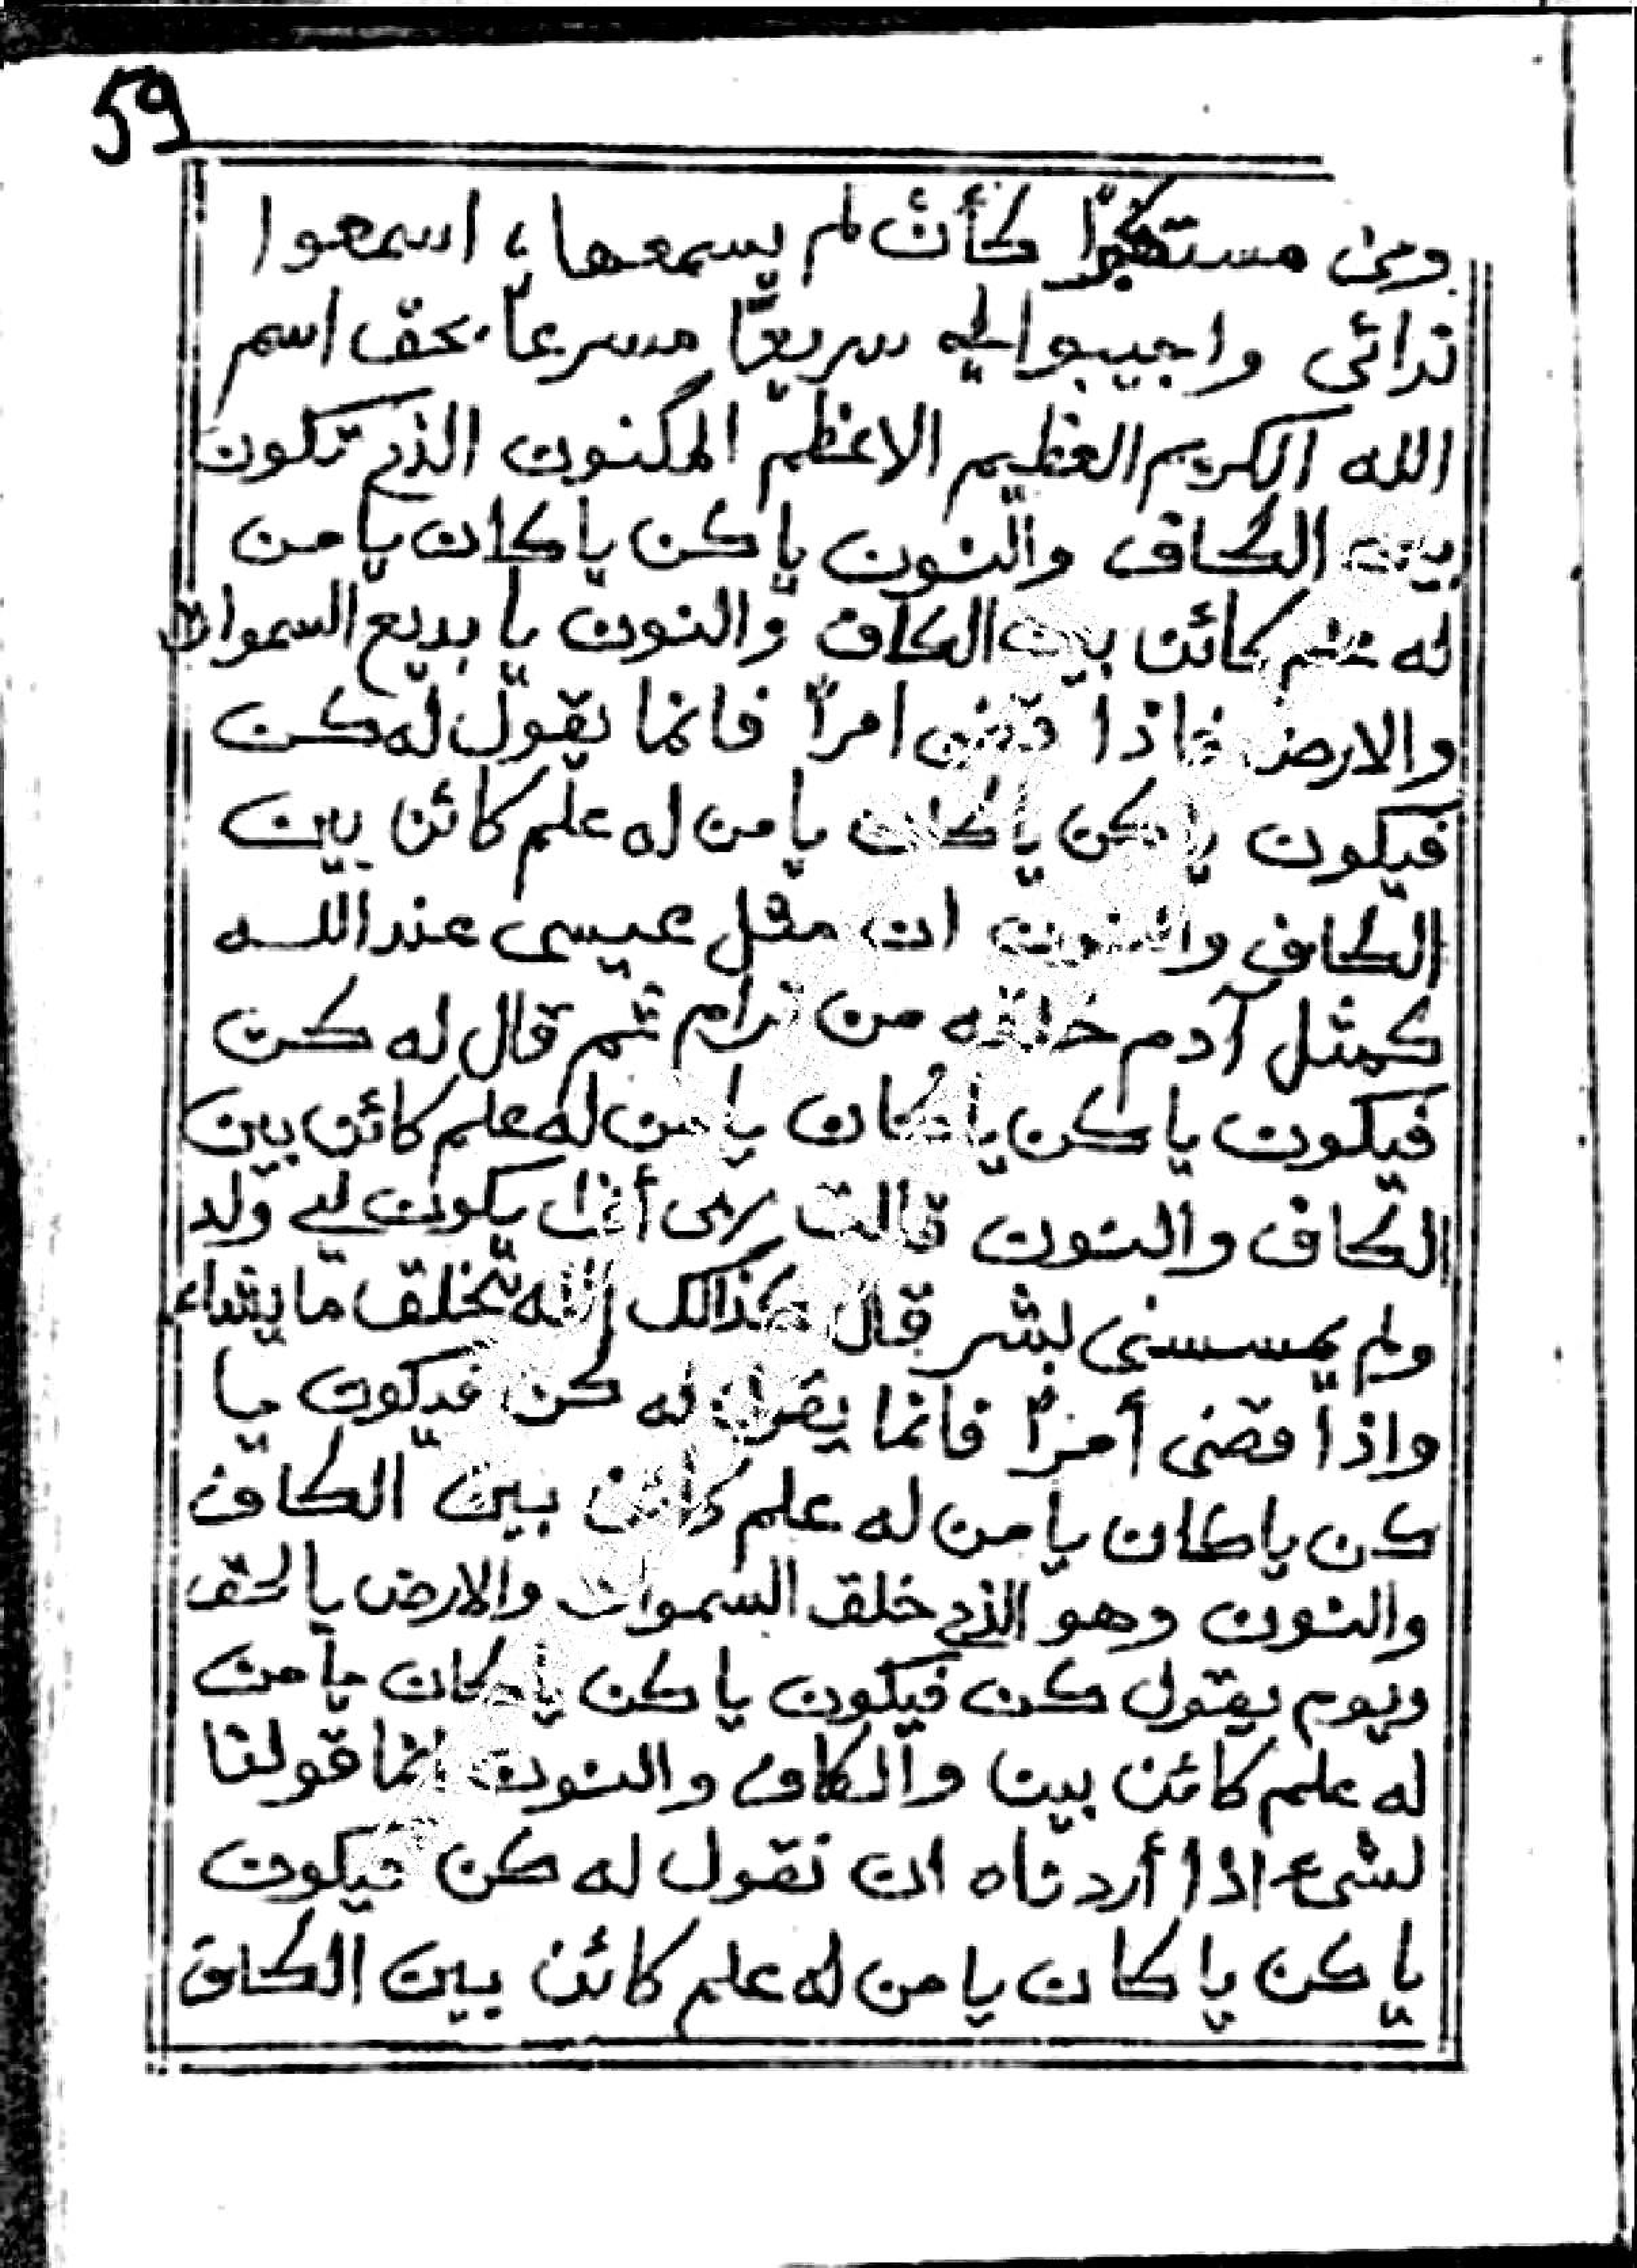 59
ومن مستكبرًا كأن لم يسمعها، اسمعوا
ندائى واجيبوا إليه سريعًا مسرعاً بحق اسم
الله الكريم العظيم الاعظم المكنون الذي تكون
بين الكاف والنون يا كن يا كان يا من
له علم كائن بين الكاف والنون يا بديع السموات
والارض فاذا قضى امراً فانما يقول له كن
فيكون يا كن يا كان يا من له علم كائن بين
الكاف والنون ان مثل عيسى عند الله
كمثل آدم خلقه من ترام ثم قال له كن
فيكون يا كن يا كان يا من له علم كائن بين
الكاف والنون قالت ربى أنا يكون لي ولد
ولم يمسسنى بشر قال كذالك الله يخلق ما يشاء
واذا قضى أمراً فانما يقول له كن فيكون يا
كن يا كان يا من له علم كائن بين الكاف
والنون وهو الذي خلق السموات والارض بالحق
ويوم يقول كن فيكون يا كن يا كان يا من
له علم كائن بين والكاف والنون انما قولنا
لشىء اذا أردناه ان نقول له كن فيكون
يا كن يا كان يا من له علم كائن بين الكاف